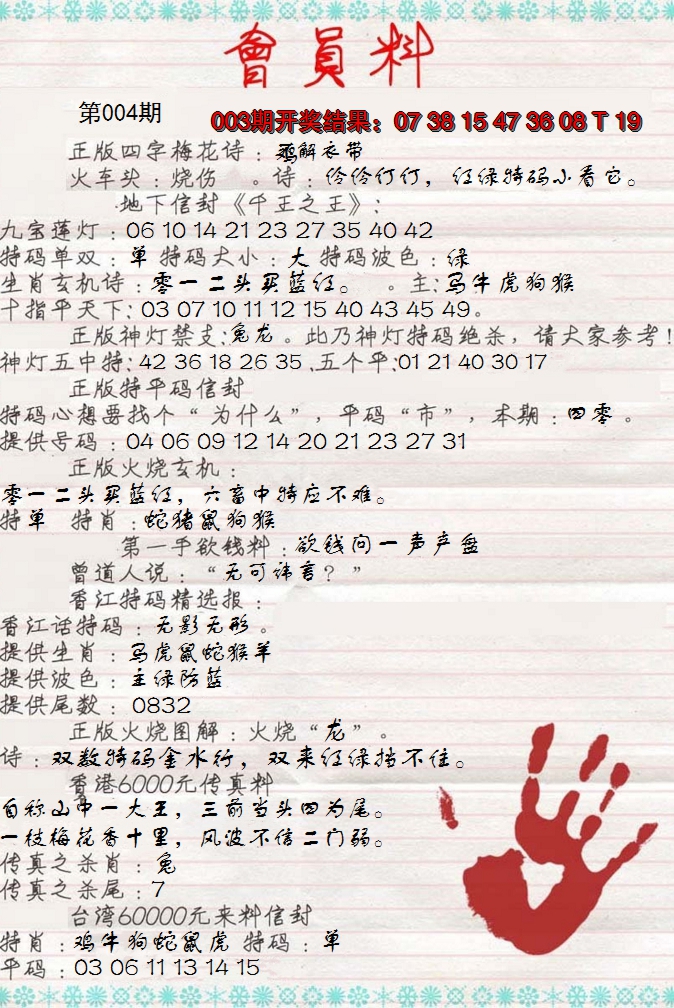 會員料
第004期
003期开奖结果：07 38 15 47 36 08 T 19
正版四字梅花诗：鸡解衣带
火车头：烧伤 。诗：伶伶仃仃，红绿特码小看它。
地下信封《千王之王》：
九宝莲灯：06 10 14 21 23 27 35 40 42
特码单双：单 特码大小：大 特码波色：绿
生肖玄机诗：零一二头买蓝红。 。主：马牛虎狗猴
十指平天下：03 07 10 11 12 15 40 43 45 49。
正版神灯禁支：兔龙。此乃神灯特码绝杀，请大家参考！
神灯五中特：42 36 18 26 35 .五个平：01 21 40 30 17
正版特平码信封
特码心想要找个“为什么”，平码“市”，本期：四零。
提供号码：04 06 09 12 14 20 21 23 27 31
正版火烧玄机：
零一二头买蓝红，六畜中特应不难。
特单 特肖：蛇猪鼠狗猴
第一手欲钱料：欲钱问一声产盘
曾道人说：“无可讳言？”
香江特码精选报：
香江话特码：无影无形。
提供生肖：马虎鼠蛇猴羊
提供波色：主绿防蓝
提供尾数：0832
正版火烧图解：火烧“龙”。
诗：双数特码金水行，双来红绿挡不住。
香港6000元传真料
自称山中一大王，三前当头四为尾。
一枝梅花香十里，风波不信二门弱。
传真之杀肖：兔
传真之杀尾：7
台湾60000元来料信封
特肖：鸡牛狗蛇鼠虎 特码：单
平码：03 06 11 13 14 15